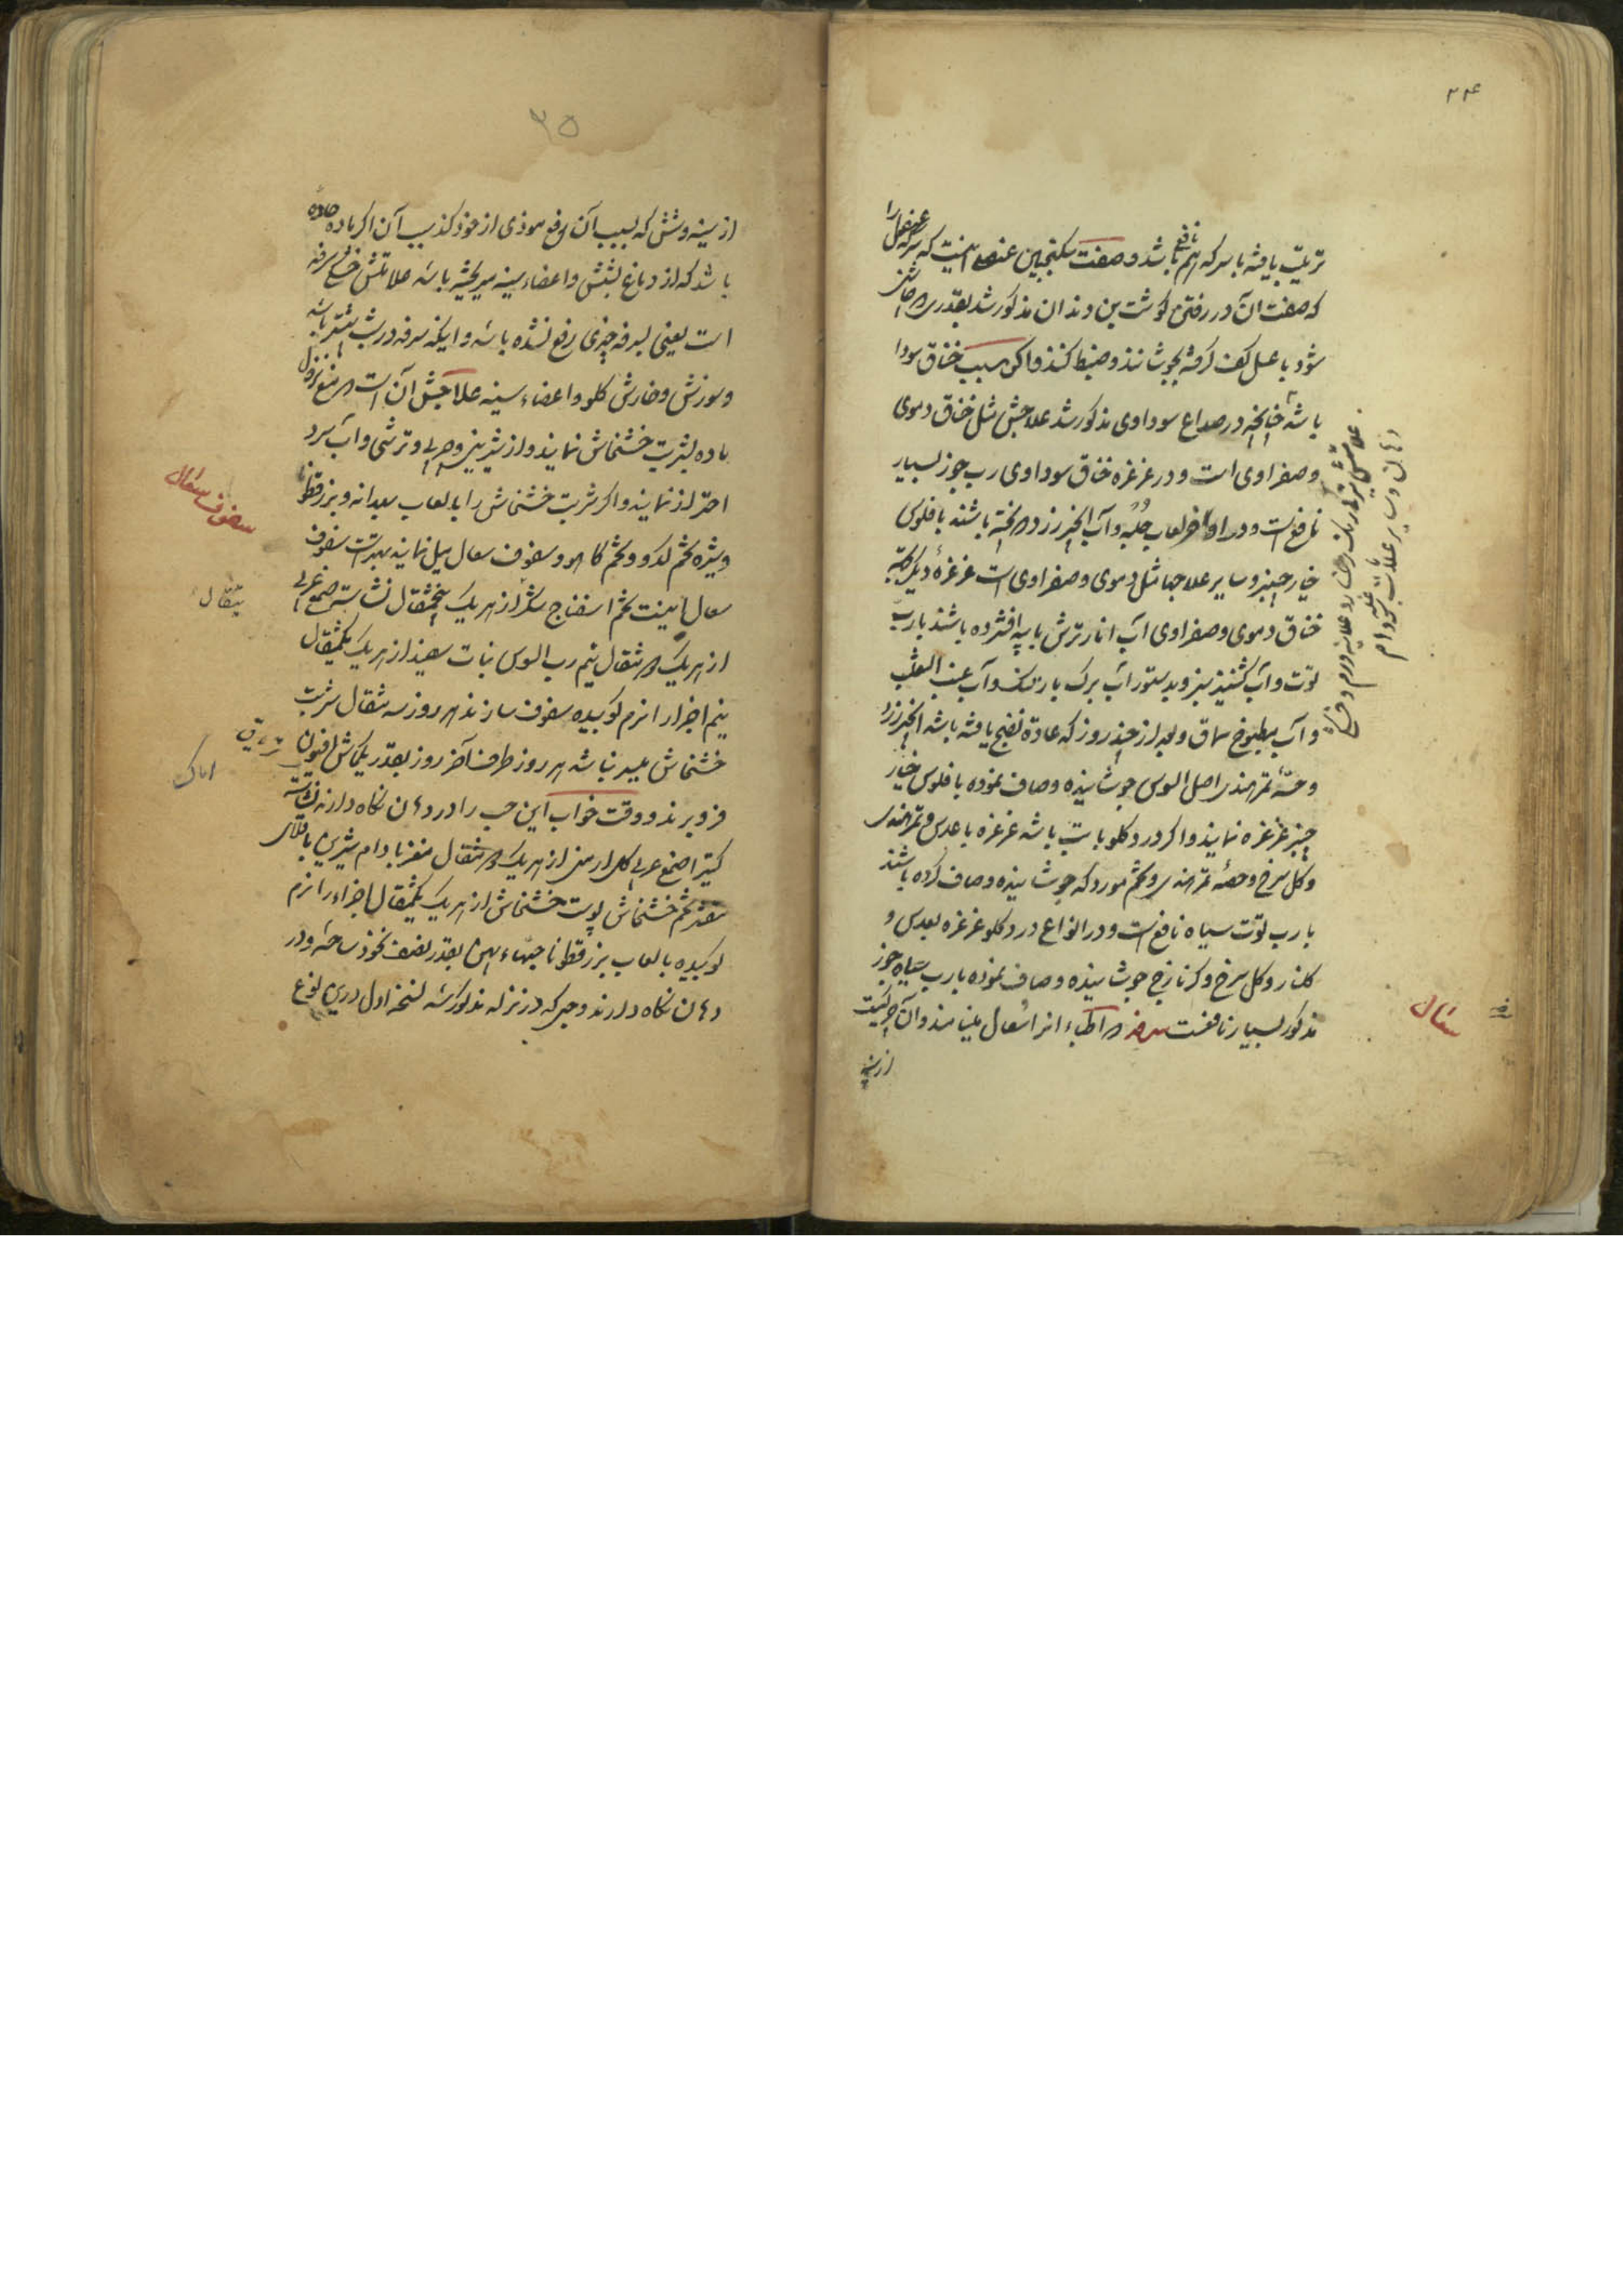 ۲۲۴
تربیت یافته باسرکه هم نافع باشد و صفت سکنجبین عنصلی اینست که سرکه عنصل را
که صفت آن در رفتن گوشت بن دندان مذکور شد بقدری که حاض
شود با عسل کف گرفته بجوشانند و ضبط کنند و اگر سبب خناق سودا
باشد چنانچه در صداع سوداوی مذکور شد علاجش مثل خناق دموی
و صفراوی است و در غرغره خناق سوداوی رب جوز بسیار
نافع است و در اواخر لعاب حلبه و آب انجیر زرد پخته باشند با فلوس
خیار چنبر و سایر علاجها مثل دموی و صفراوی است غرغرهٔ دیگر جهة
خناق دموی و صفراوی آب انار ترش با پیه افشرده باشند با رب
توت و آب کشنیز سبز و بدستور آب برک بارتنک و آب عنب الثعلب
و آب مطبوخ سماق و بعد از چند روز که ماده نضج یافته باشد انجیر زرد
و حصهٔ تمر هندی اصل السوس جوشانیده و صاف نموده با فلوس خیار
چنبر غرغره نمایند و اگر درد گلو با تب باشد غرغره با عدس و تمر هندی
و گل سرخ و حصهٔ تمر هندی و تخم مورد که جوشانیده و صاف کرده باشند
با رب توت سیاه نافع است و در انواع درد گلو غرغره بعدس و
گلنار و گل سرخ و کزمازج جوشانیده و صاف نموده با رب سیاه جوز
مذکور بسیار نافعست سرفه که اطباء انرا سعال مینامند و آن حرکتیست
از سینه
دهان و سایر علامات
سعال
۲۵
از سینه و شش که بسبب آن دفع موذی از خود کند سبب آن اگر ماده حاده
باشد که از دماغ بشش و اعضاء سینه میریخته باشد علامتش خشکی سرفه
است یعنی بسرفه چیزی رفع نشده باشد و اینکه سرفه در شب بیشتر باشد
و سوزش و خارش گلو و اعضاء سینه علاجش آن است که منع نزول
ماده بشربت خشخاش نمایند و از شیرینی و چربی و ترشی و آب سرد
احتراز نمایند و اگر شربت خشخاش را با لعاب بهدانه و بزرقطونا
و شیره تخم کدو و تخم کاهو و سفوف سعال میل نمایند بهتر است سفوف
سعال اینست تخم اسفناج شکر از هر یک پنجمثقال نشاسته صمغ عربی
از هر یک دو مثقال نیم رب السوس نبات سفید از هر یک یکمثقال
نیم اجزا را نرم کوبیده سفوف سازند هر روز سه مثقال شربت
خشخاش میسر نباشد هر روز طرف آخر روز بقدر یکماش افیون
فرو برند و وقت خواب این حب را در دهان نگاه دارند نشاسته
کتیرا صمغ عربی گل ارمنی از هر یک دو مثقال مغز بادام شیرین باقلای
مقشر تخم خشخاش پوست خشخاش از هر یک یکمثقال اجزاء را نرم
کوبیده با لعاب بزرقطونا حبهاء پهن بقدر نصف نخود ساخته و در
دهان نگاه دارند و حبی که در نزله مذکور شد نسخه اول درین نوع
سفوف سعال
مثقال